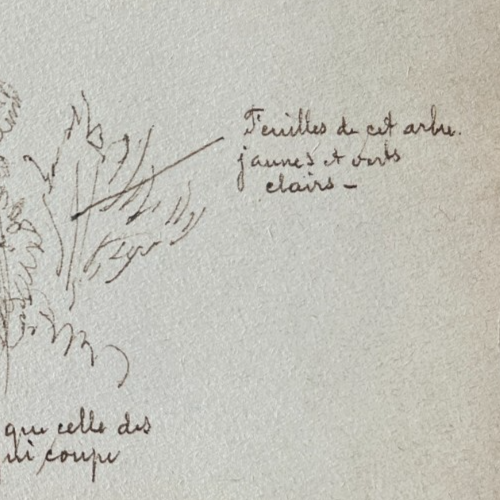 Feuilles de cet arbre.
jaunes et verts
clairs –
que celle des
qui coupe